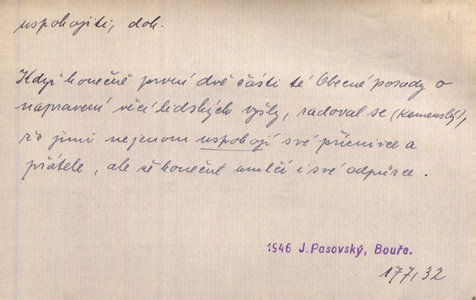 uspokojiti, dok.
Když konečně první dvě části té Obecné porady o
napravení věcí lidských vyšly, radoval se (Komenský),
že jimi nejenom uspokojí své příznivce a
přátele, ale že konečně umlčí i své odpůrce.
1946 J. Pasovský, Bouře.
177, 32